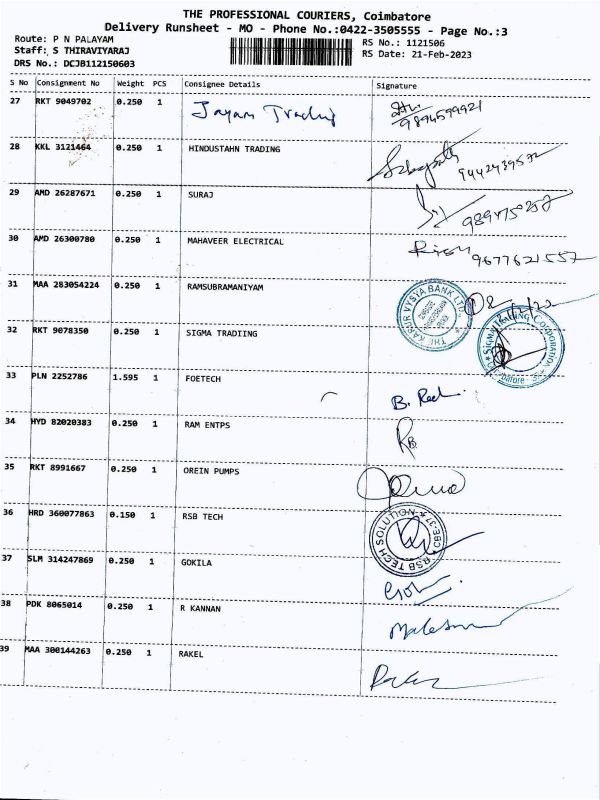 THE PROFESSIONAL COURIERS, Coimbatore
Delivery Runsheet - MO - Phone No.:0422-3505555 - Page No.:3
Route: P N PALAYAM
RS No.: 1121506
Staff: S THIRAVIYARAJ
RS Date: 21-Feb-2023
DRS No.: DCJB112150603
S No Consignment No Weight PCS Consignee Details Signature
27 RKT 9049702 0.250 1 Jayam Trading
9894599921
28 KKL 3121464 0.250 1 HINDUSTAHN TRADING
29 AMD 26287671 0.250 1 SURAJ
30 AMD 26300780 0.250 1 MAHAVEER ELECTRICAL
9677621557
31 MAA 283054224 0.250 1 RAMSUBRAMANIYAM
THE KARUR VYSYA BANK LTD.
32 RKT 9078350 0.250 1 SIGMA TRADIING
SIGMA TRADING CORPORATION
33 PLN 2252786 1.595 1 FOETECH
34 HYD 82020383 0.250 1 RAM ENTPS
35 RKT 8991667 0.250 1 OREIN PUMPS
36 HRD 360077863 0.150 1 RSB TECH
RSB TECH SOLUTION CBE-37
37 SLM 314247869 0.250 1 GOKILA
38 PDK 8065014 0.250 1 R KANNAN
39 MAA 300144263 0.250 1 RAKEL